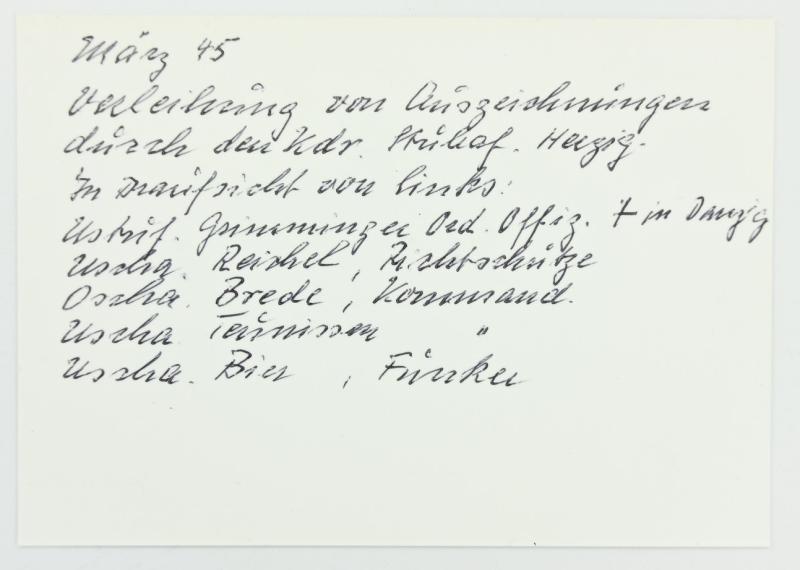 März 45
Verleihung von Auszeichnungen
durch den Kdr. Stubaf. Herzig.
In Draufsicht von links:
Ustuf. Grimminger Ord. Offiz. † in Danzig
Uscha. Reichel, Richtschütze
Oscha. Brede, Kommand.
Uscha Teunissen "
Uscha. Bier, Funker